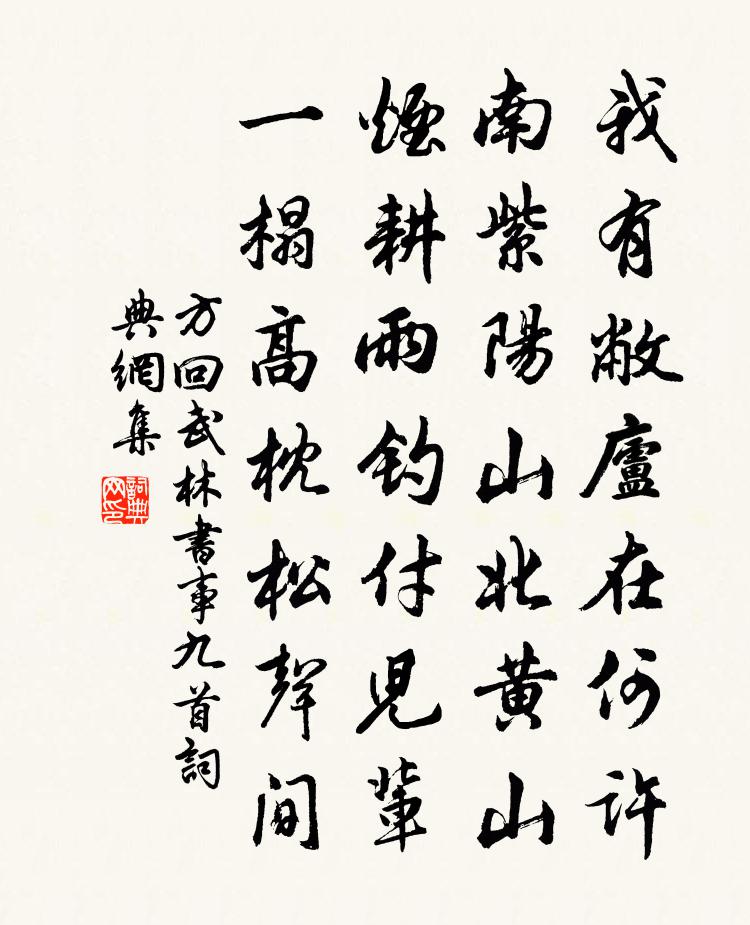 我有敝廬在何許
南紫陽山北黃山
煙耕雨釣付兒輩
一榻高枕松聲間
方回武林書事九首詞
典網集
詞典
网印